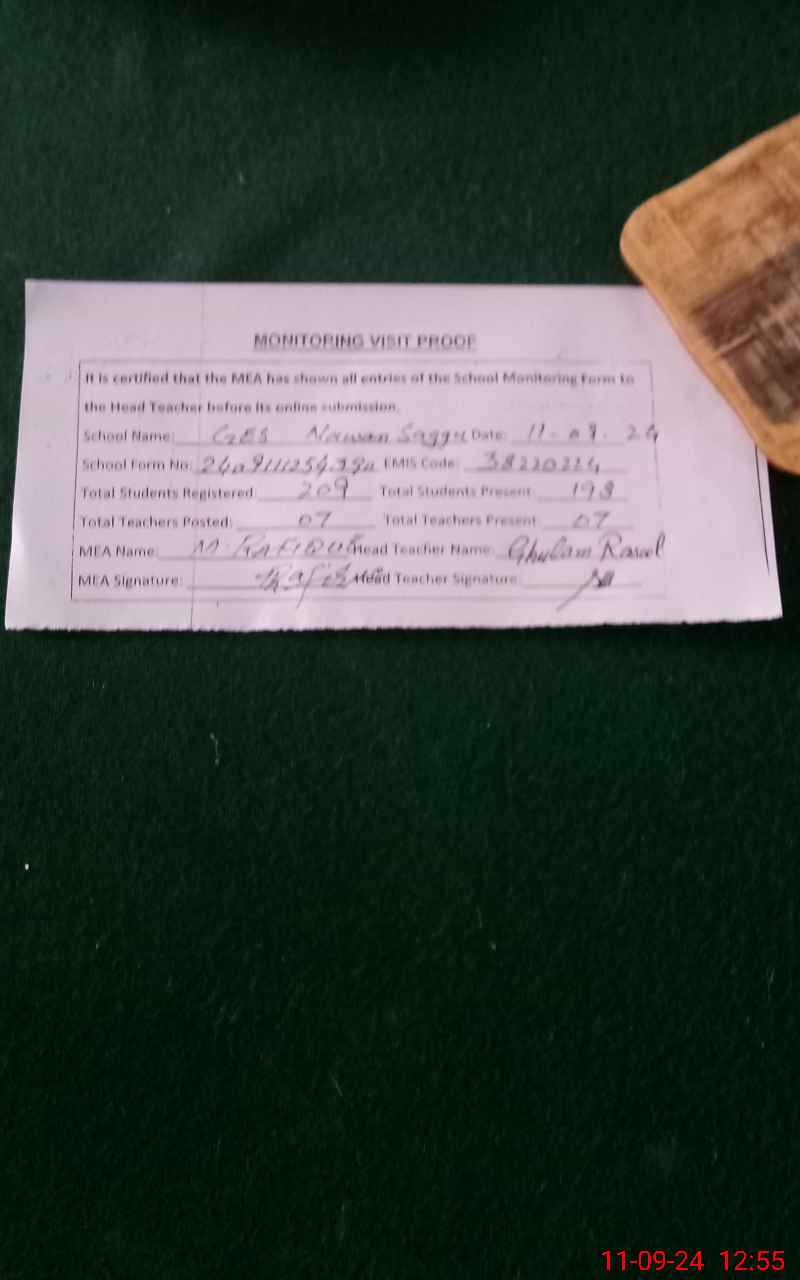 MONITORING VISIT PROOF
It is certified that the MEA has shown all entries of the School Monitoring Form to
the Head Teacher before its online submission.
School Name: GES Nawan Saggu Date: 11-09-24
School Form No: EMIS Code: 38220224
Total Students Registered: 209 Total Students Present: 198
Total Teachers Posted: 07 Total Teachers Present: 07
MEA Name: M. RAFIQUE Head Teacher Name: Ghulam Rasool
MEA Signature: Rafique Head Teacher Signature:
11-09-24 12:55